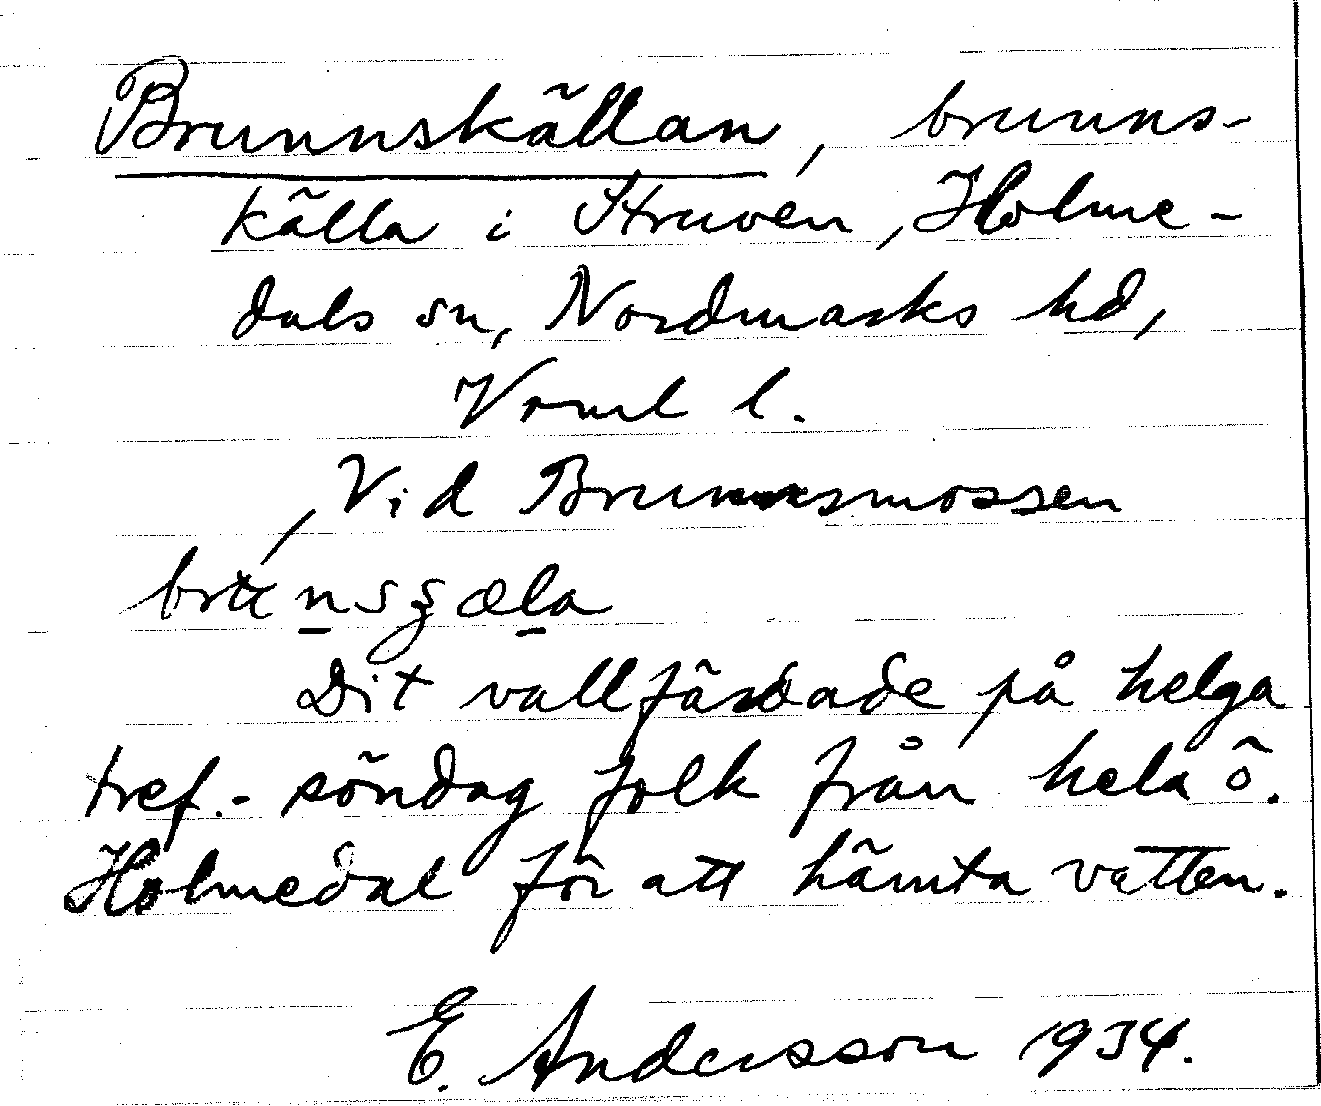 Brunnskällan, brunns-
källa i Struven, Holme-
dals sn, Nordmarks hd,
Vrml l.
Vid Brunnsmossen
Dit vallfärdade på helga
tref.- söndag folk från hela ö.
Holmedal för att hämta vatten.
E. Andersson 1934.